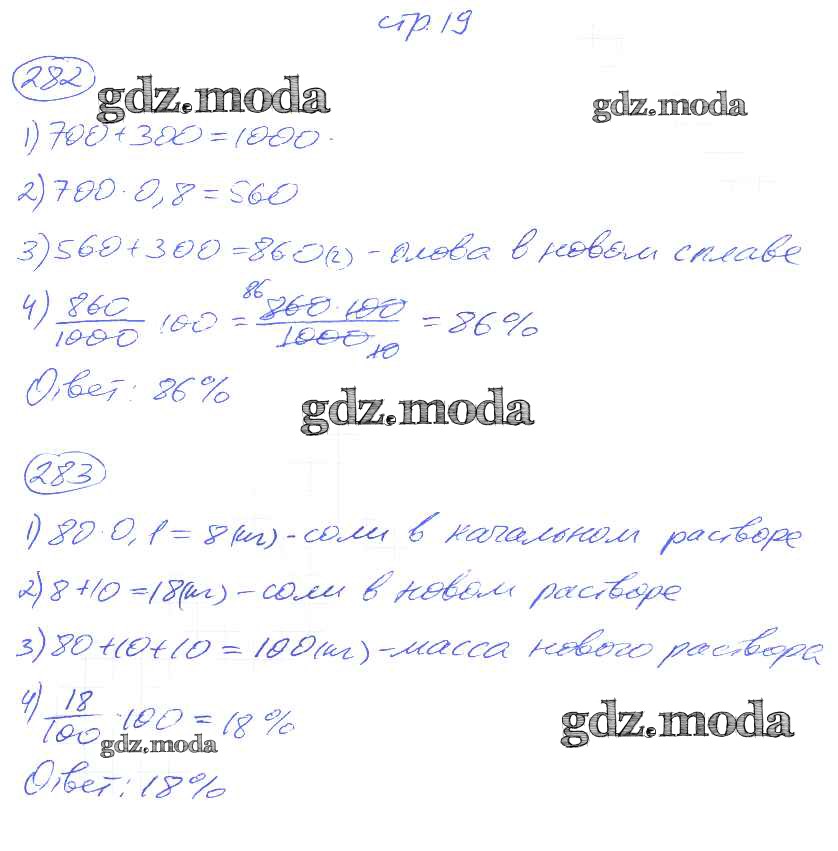 стр. 19
282
gdz.moda
gdz.moda
1) 700 + 300 = 1000.
2) 700 · 0,8 = 560
3) 560 + 300 = 860 (г) - олова в новом сплаве
4) 860/1000 · 100 = 86 860 · 100/1000 10 = 86%
Ответ: 86%
gdz.moda
283
1) 80 · 0,1 = 8 (кг) - соли в начальном растворе
2) 8 + 10 = 18 (кг) - соли в новом растворе
3) 80 + 10 + 10 = 100 (кг) - масса нового раствора
4) 18/100 · 100 = 18%
gdz.moda
gdz.moda
Ответ: 18%